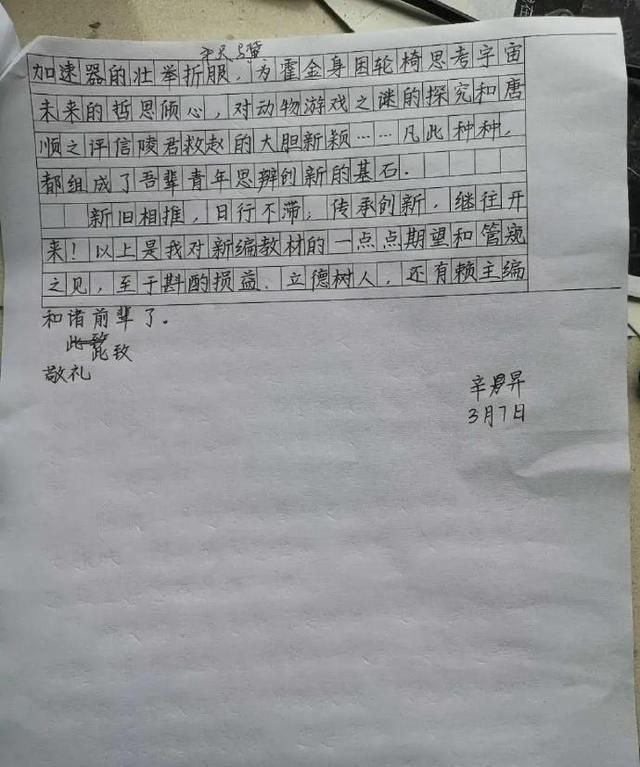 加速器的壮举折服，为霍金身困轮椅思考宇宙
未来的哲思倾心，对动物游戏之谜的探究和唐
顺之评信陵君救赵的大胆新颖……凡此种种，
都组成了吾辈青年思辨创新的基石．
新旧相推，日行不滞；传承创新，继往开
来！以上是我对新编教材的一点点期望和管窥
之见，至于斟酌损益、立德树人，还有赖主编
和诸前辈了．
此致
此致
敬礼
3月7日